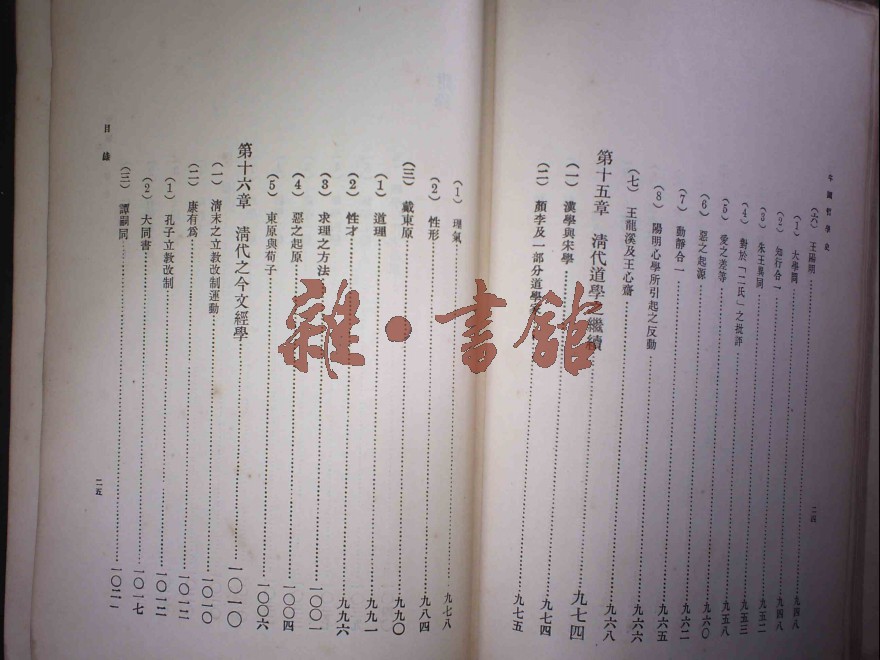 中國哲學史
(六)王陽明
(1)大學問……九四八
(2)知行合一……九四八
(3)朱王異同……九五二
(4)對於「二氏」之批評……九五三
(5)愛之差等……九五八
(6)惡之起源……九六〇
(7)動靜合一……九六二
(8)陽明心學所引起之反動……九六五
(七)王龍溪及王心齋……九六六
第十五章 清代道學之繼續……九六八
(一)漢學與宋學……九七四
(二)顏李及一部分道學家……九七四
九七五
二四
(1)理氣……九七八
(2)性形……九八四
(三)戴東原……九九〇
(1)道理……九九一
(2)性才……九九六
(3)求理之方法……一〇〇一
(4)惡之起原……一〇〇四
(5)東原與荀子……一〇〇六
第十六章 清代之今文經學……一〇一〇
(一)清末之立教改制運動……一〇一〇
(二)康有為……一〇一二
(1)孔子立教改制……一〇一二
(2)大同書……一〇一七
(三)譚嗣同……一〇二一
目錄
二五
雜·書館